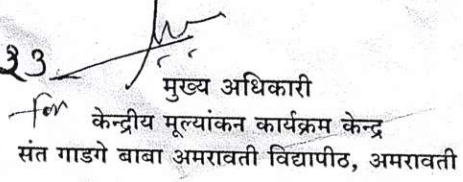 २३
मुख्य अधिकारी
for केन्द्रीय मूल्यांकन कार्यक्रम केन्द्र
संत गाडगे बाबा अमरावती विद्यापीठ, अमरावती